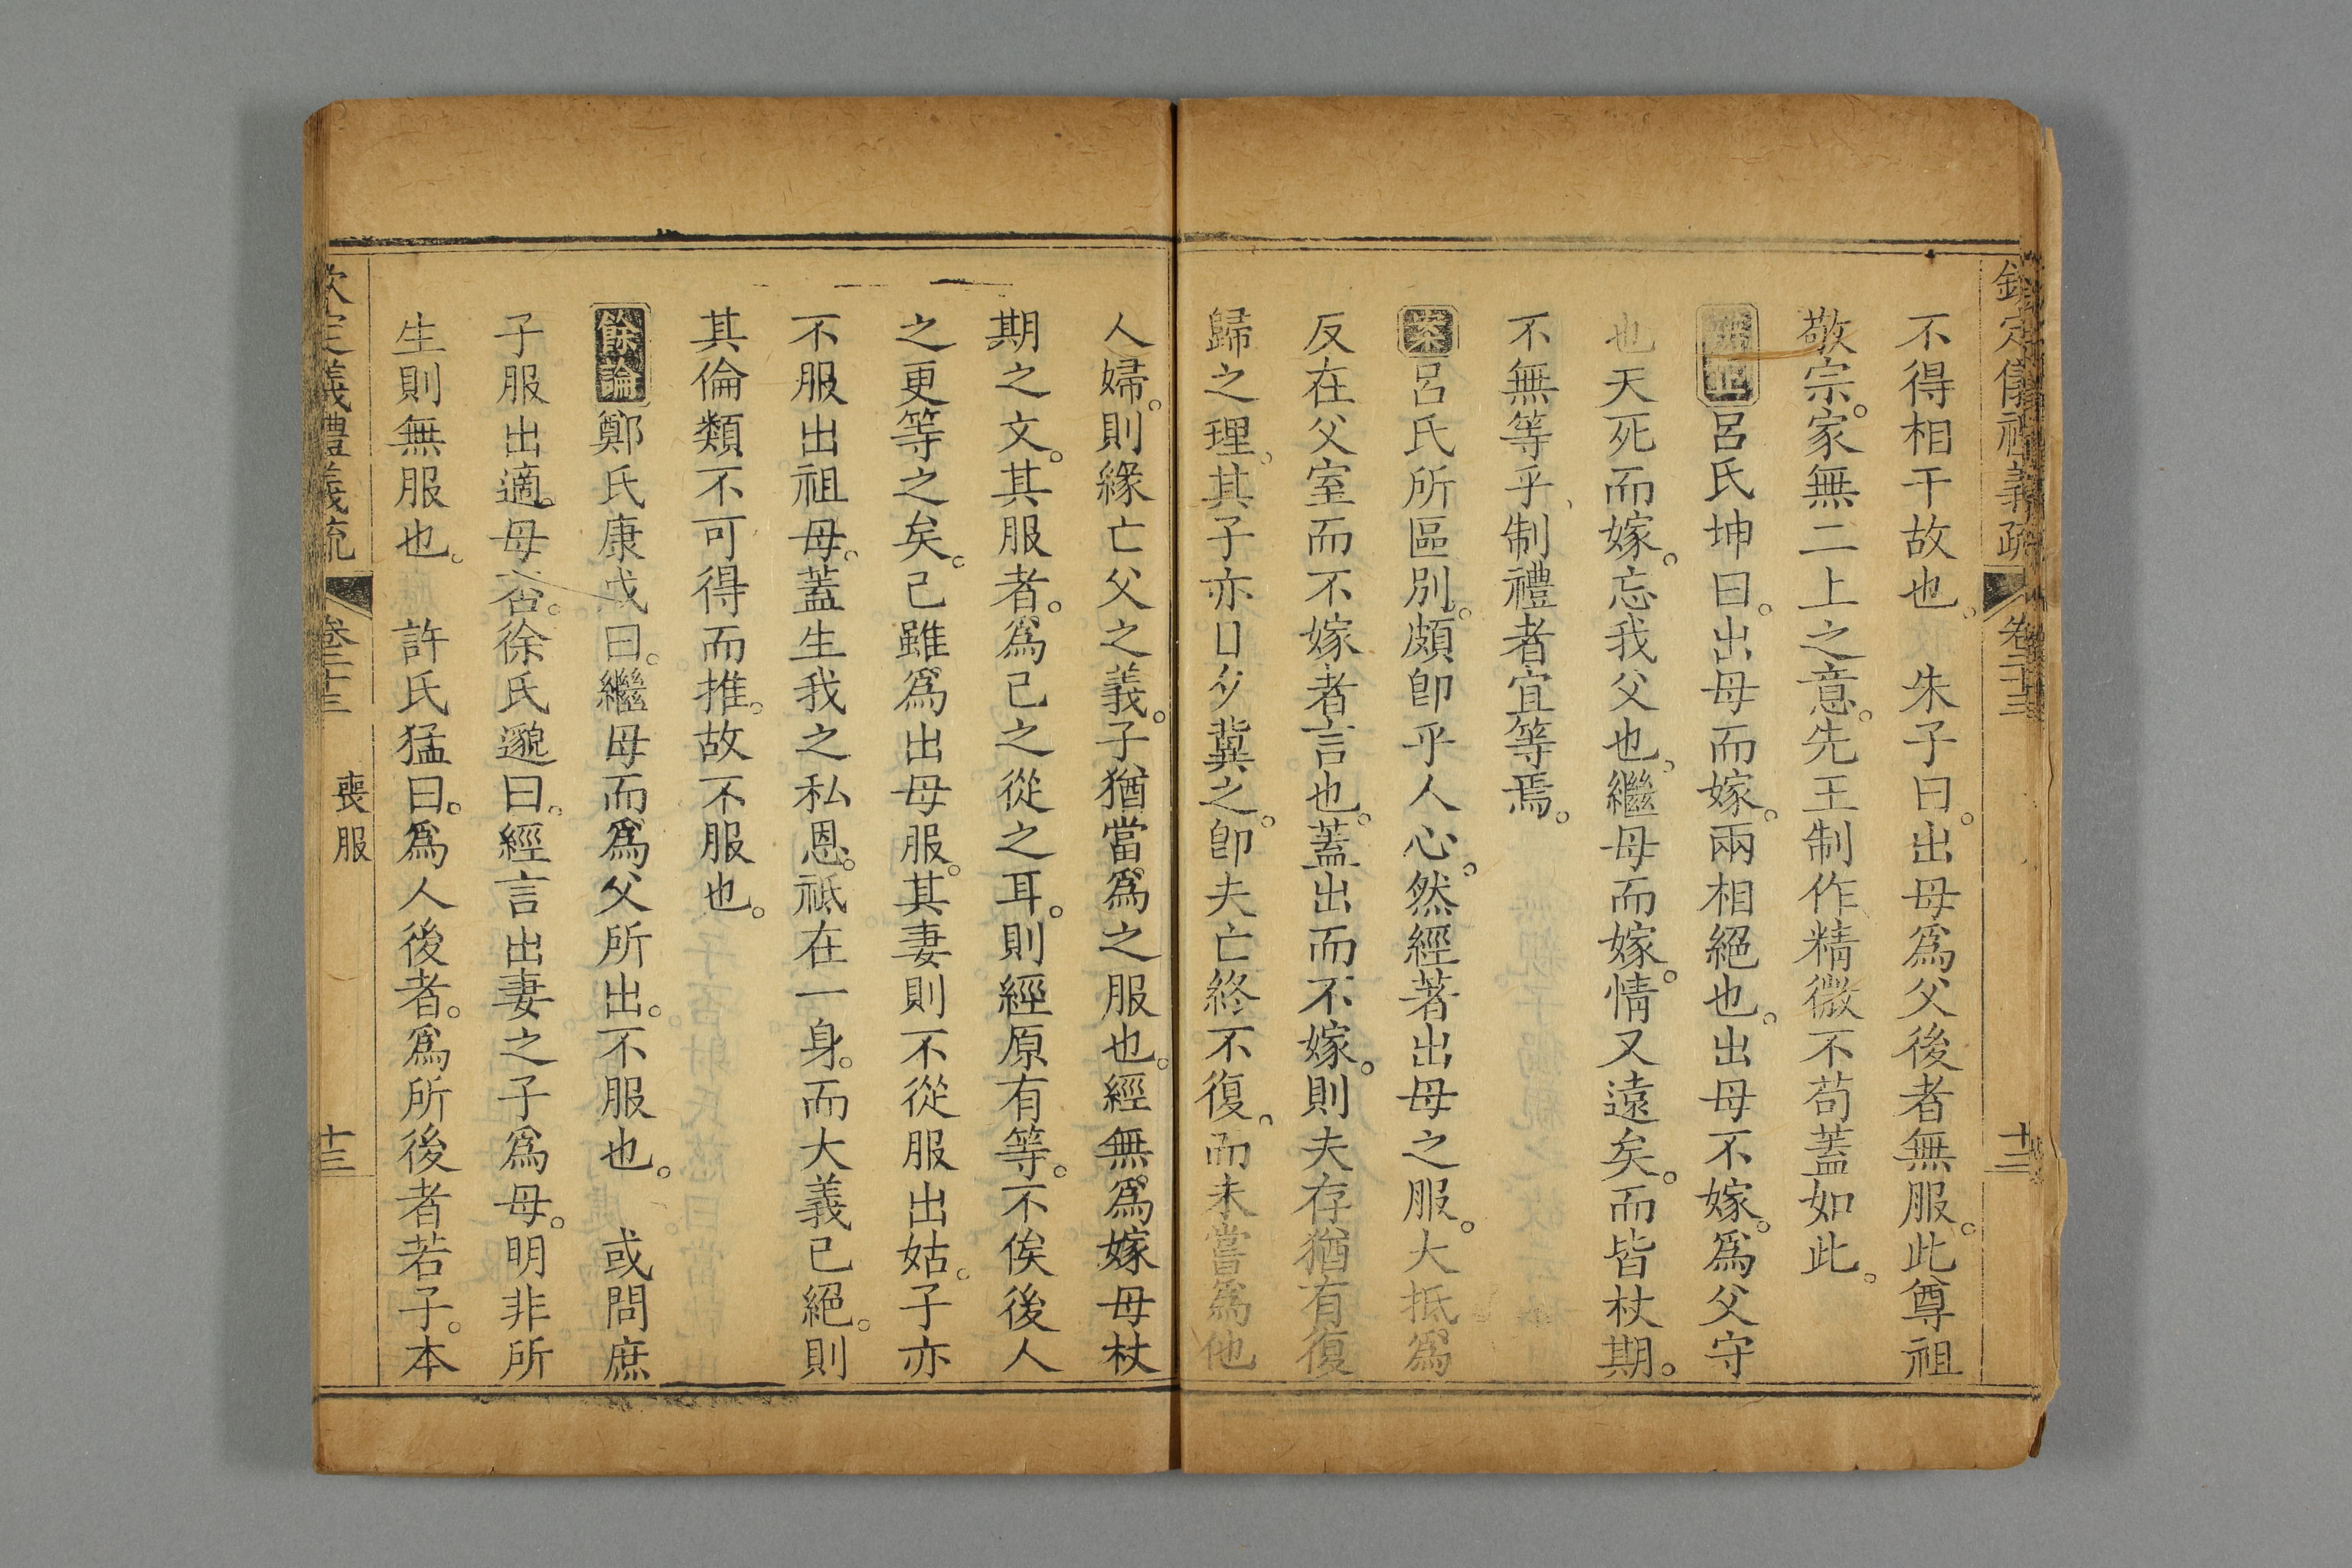 欽定儀禮義疏 卷二十三 十二
不得相干故也。 朱子曰。出母爲父後者無服。此尊祖
敬宗。家無二上之意。先王制作精微不苟蓋如此。
呂氏坤曰。出母而嫁。兩相絕也。出母不嫁。爲父守
也天死而嫁。忘我父也。繼母而嫁。情又遠矣。而皆杖期。
不無等乎、制禮者宜等焉。
案呂氏所區別。頗卽乎人心。然經著出母之服。大抵爲
反在父室而不嫁者言也。蓋出而不嫁。則夫存猶有復
歸之理。其子亦日夕冀之。卽夫亡終不復。而未嘗爲他
人婦。則緣亡父之義。子猶當爲之服也。經無爲嫁母杖
期之文。其服者。爲己之從之耳。則經原有等。不俟後人
之更等之矣。己雖爲出母服。其妻則不從服出姑。子亦
不服出祖母。蓋生我之私恩。祗在一身。而大義已絕。則
其倫類不可得而推。故不服也。
餘論鄭氏康成曰。繼母而爲父所出。不服也。 或問庶
子服出適。母否。徐氏邈曰。經言出妻之子爲母。明非所
生則無服也。 許氏猛曰。爲人後者。爲所後者若子。本
欽定儀禮義疏 卷二十三 喪服 十三